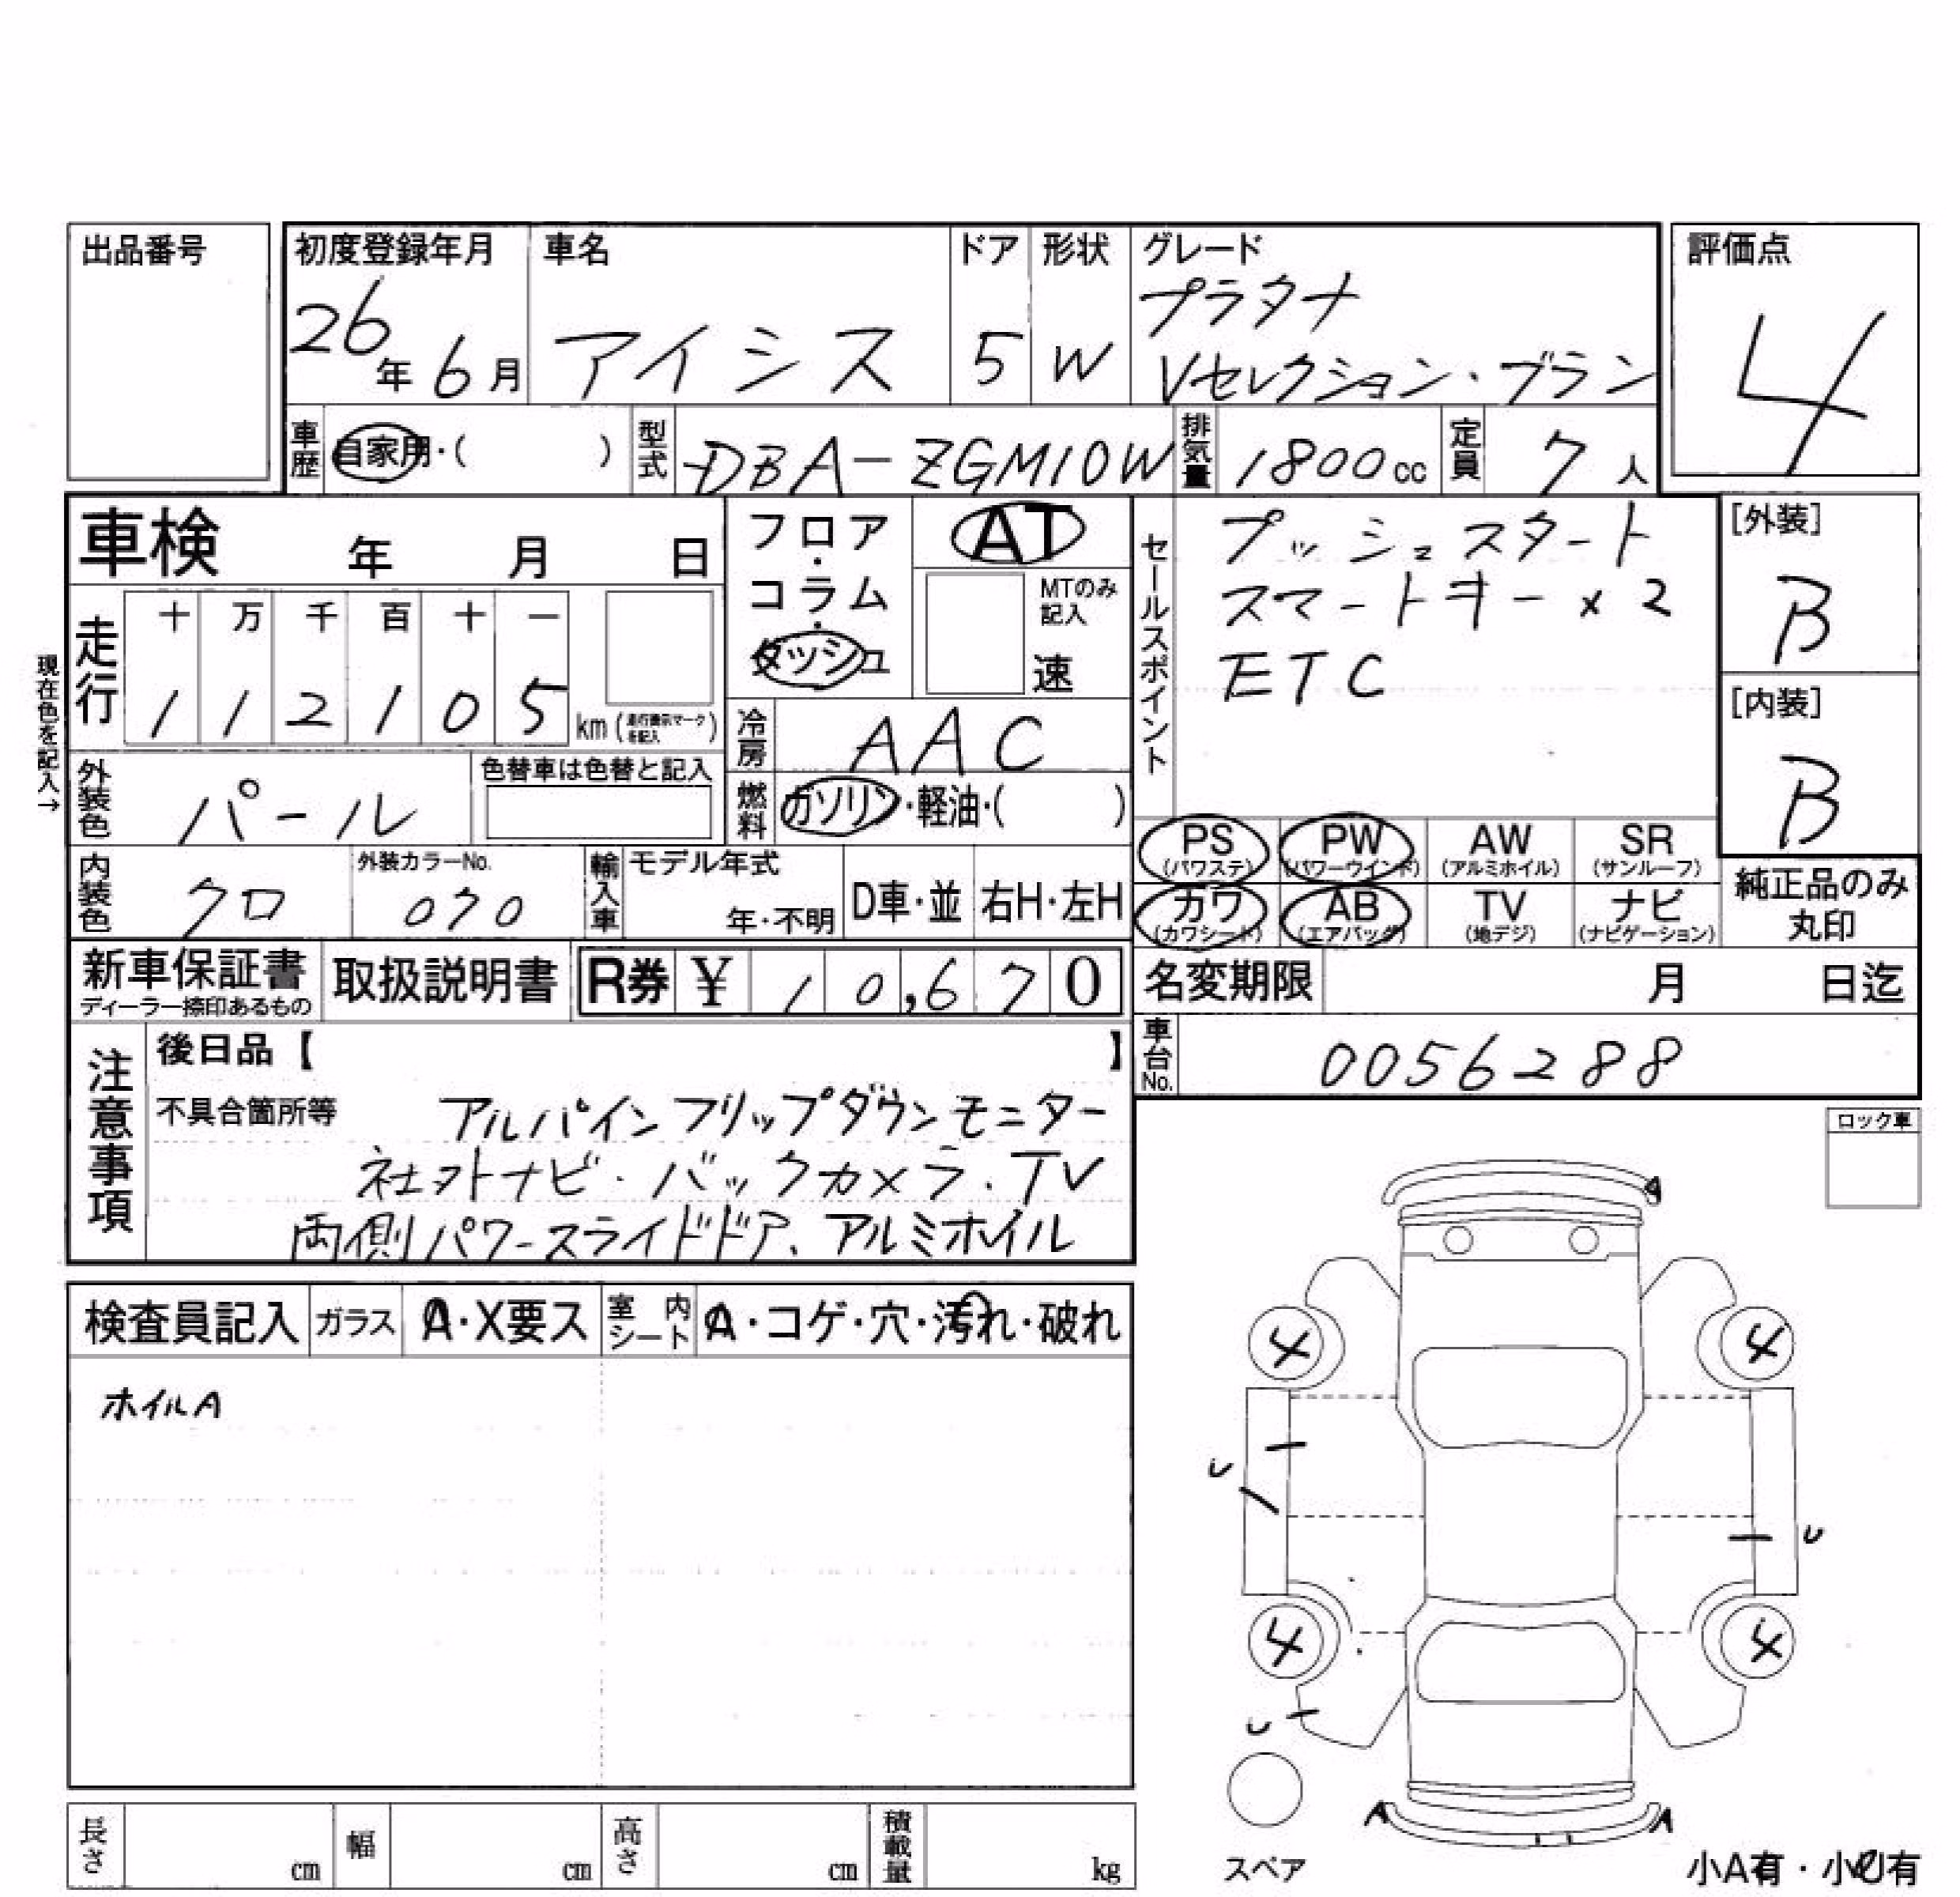 出品番号
初度登録年月
26年6月
車名
アイシス
ドア
5
形状
W
グレード
プラタナ
Vセレクション・ブラン
評価点
4
車歴 自家用・( )
型式 DBA-ZGM10W
排気量 1800cc
定員 7人
車検 年 月 日
フロア・コラム・ダッシュ
AT
MTのみ記入
速
セールスポイント
プッシュスタート
スマートキー×2
ETC
[外装]
B
[内装]
B
現在色を記入→
走行
十 万 千 百 十 一
1 1 2 1 0 5 km (走行表示マークを記入)
冷房 AAC
外装色 パール
色替車は色替と記入
燃料 ガソリン・軽油・( )
PS (パワステ)
PW (パワーウインド)
AW (アルミホイル)
SR (サンルーフ)
カワ (カワシート)
AB (エアバッグ)
TV (地デジ)
ナビ (ナビゲーション)
純正品のみ
丸印
内装色 クロ
外装カラーNo.
070
輸入車
モデル年式
年・不明
D車・並
右H・左H
新車保証書
ディーラー捺印あるもの
取扱説明書
R券 ¥ 10,670
名変期限 月 日迄
車台No. 0056288
注意事項
後日品【 】
不具合箇所等
アルパインフリップダウンモニター
社外ナビ・バックカメラ・TV
両側パワースライドドア、アルミホイル
ロック車
検査員記入
ガラス A・X要ス
室内シート A・コゲ・穴・汚れ・破れ
ホイルA
A
4 4
U
U
4 4
U
A A
スペア
小A有・小U有
長さ cm
幅 cm
高さ cm
積載量 kg